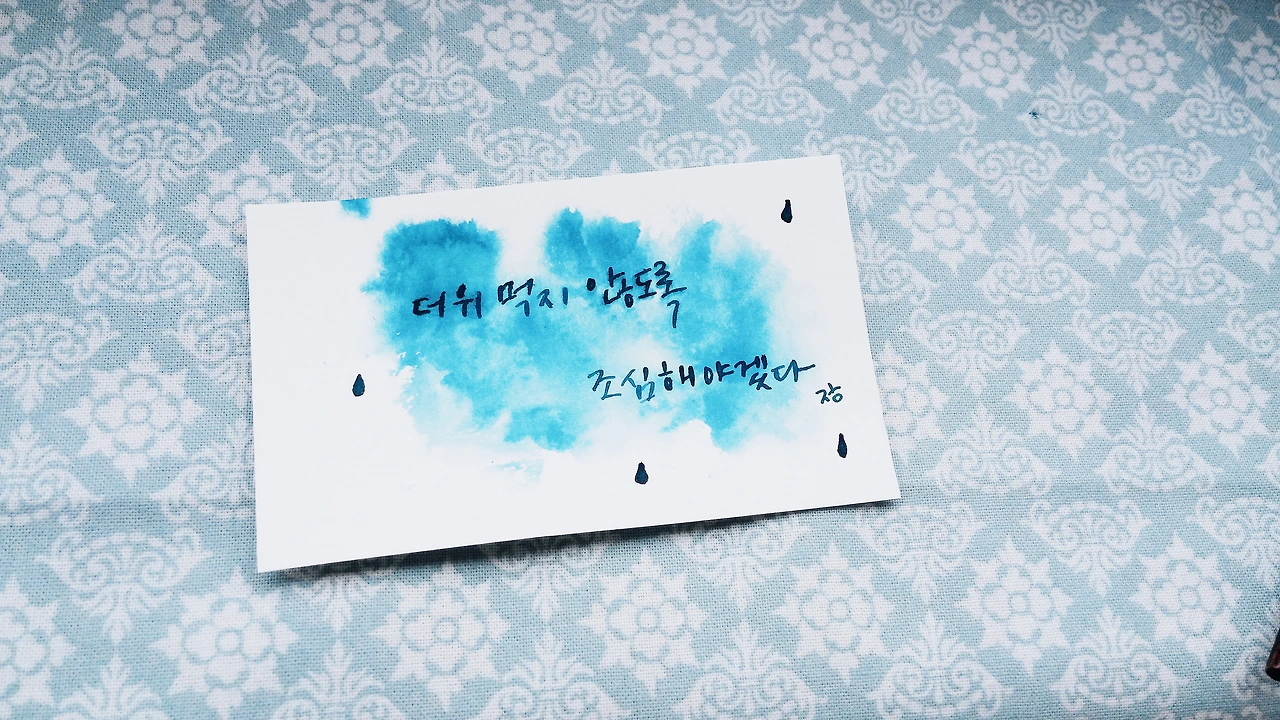 더위 먹지 않도록
조심해야겠다
장